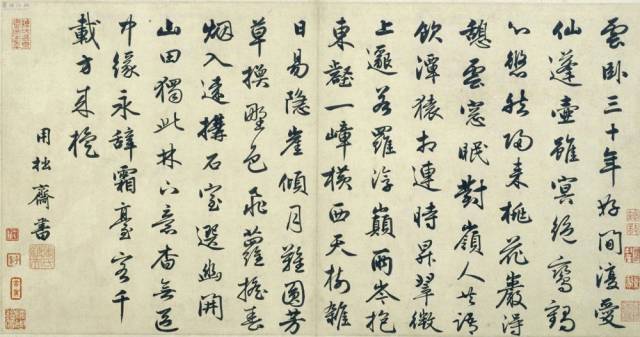 雲卧三十年好閒復愛
仙蓬壺雖冥絕鸞鶴
心悠然歸来桃花巖得
憩雲窓眠對嶺人共語
飲潭猿相連時昇翠微
上邈若羅浮巔兩岑抱
東壑一嶂橫西天樹雜
日易隱崖傾月難圓芳
草換野色飛蘿摇春
烟入遠構石室選幽開
山田獨此林下意杳無區
中緣永辭霜臺客千
載方来旋
用松齋書